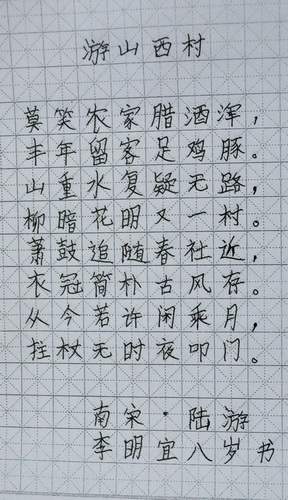 游山西村
莫笑农家腊酒浑，
丰年留客足鸡豚。
山重水复疑无路，
柳暗花明又一村。
萧鼓追随春社近，
衣冠简朴古风存。
从今若许闲乘月，
拄杖无时夜叩门。
南宋·陆游
李明宜八岁书